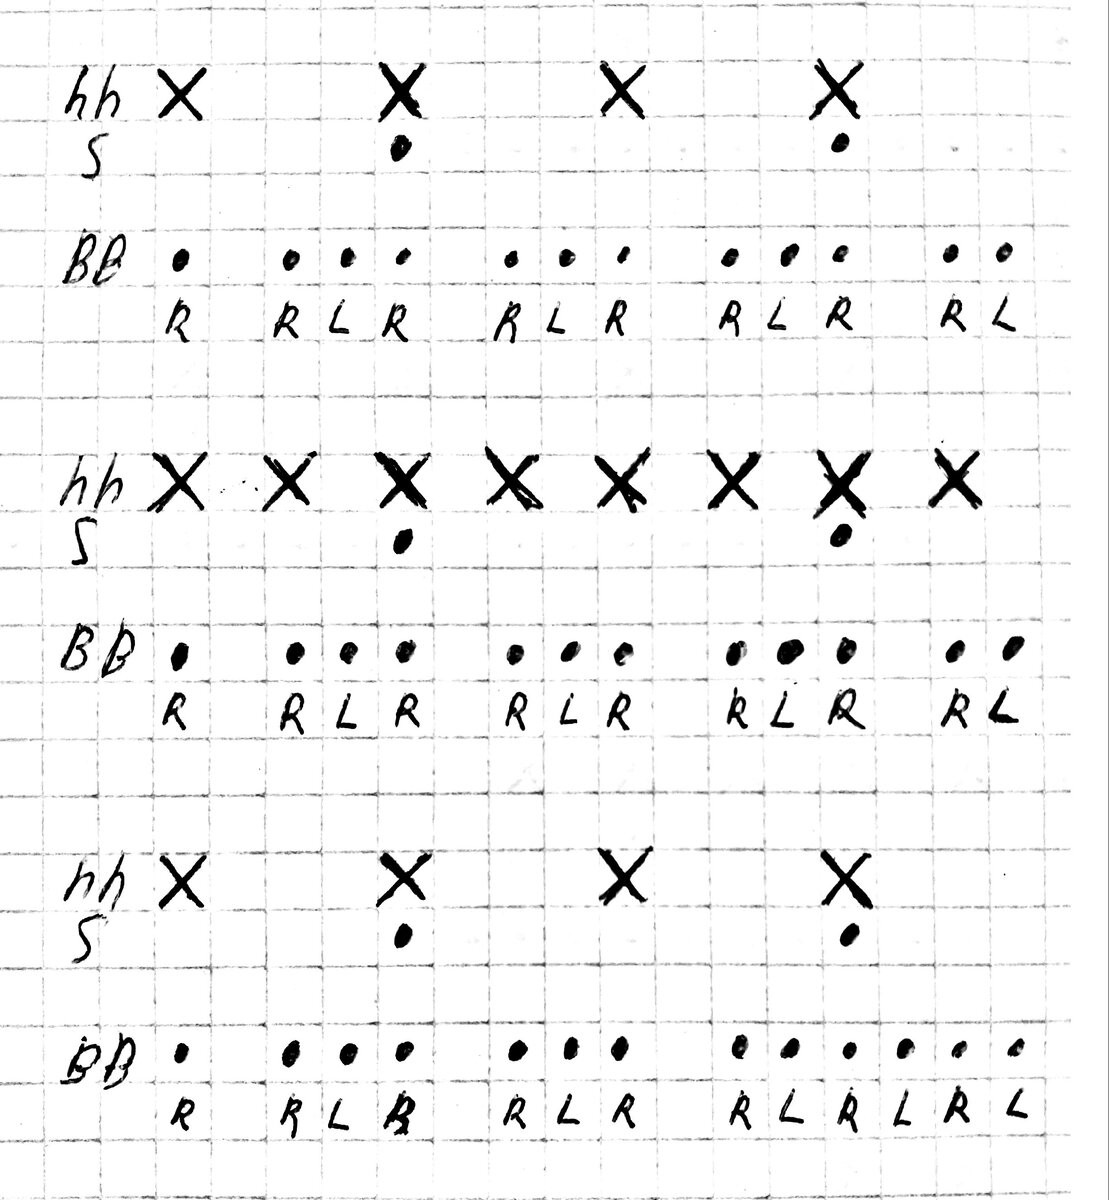 hh X X X X
S • •
BB • • • • • • • • • • • •
R R L R R L R R L R R L
hh X X X X X X X X
S • •
BB • • • • • • • • • • • •
R R L R R L R R L R R L
hh X X X X
S • •
BB • • • • • • • • • • • • •
R R L R R L R R L R L R L